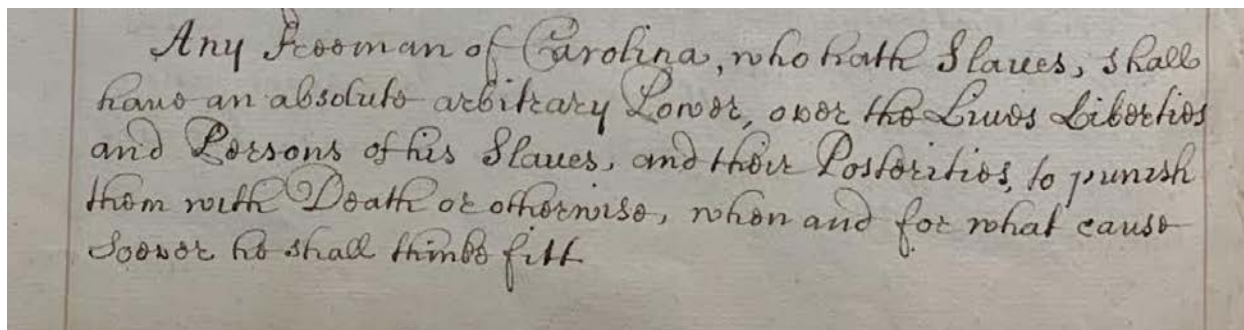 Any Freeman of Carolina, who hath Slaues, shall
haue an absolute arbitrary Power, over the Liues Liberties
and Persons of his Slaues, and their Posterities, to punish
them with Death or otherwise, when and for what cause
Soever he shall thinke fitt